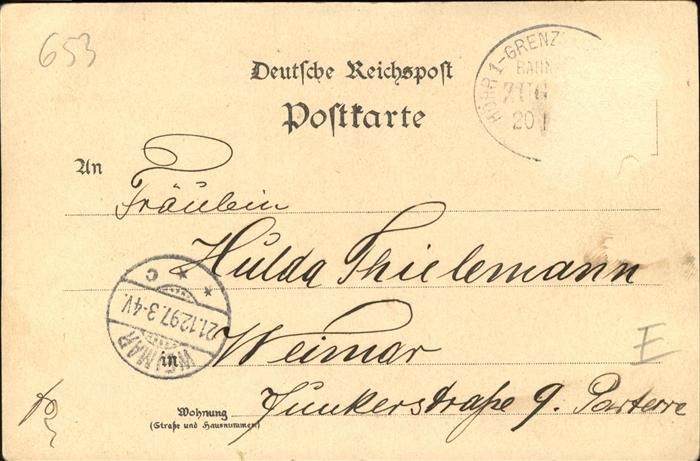 653
Deutsche Reichspost
Postkarte
HÖHR 1-GRENZ
BAHN
ZUG
20
An
Fräulein
Hulda Thielemann
WEIMAR
21.12.97.3-4V.
* c *
in Weimar
E
Wohnung
(Straße und Hausnummer)
Junkerstraße 9. Parterre